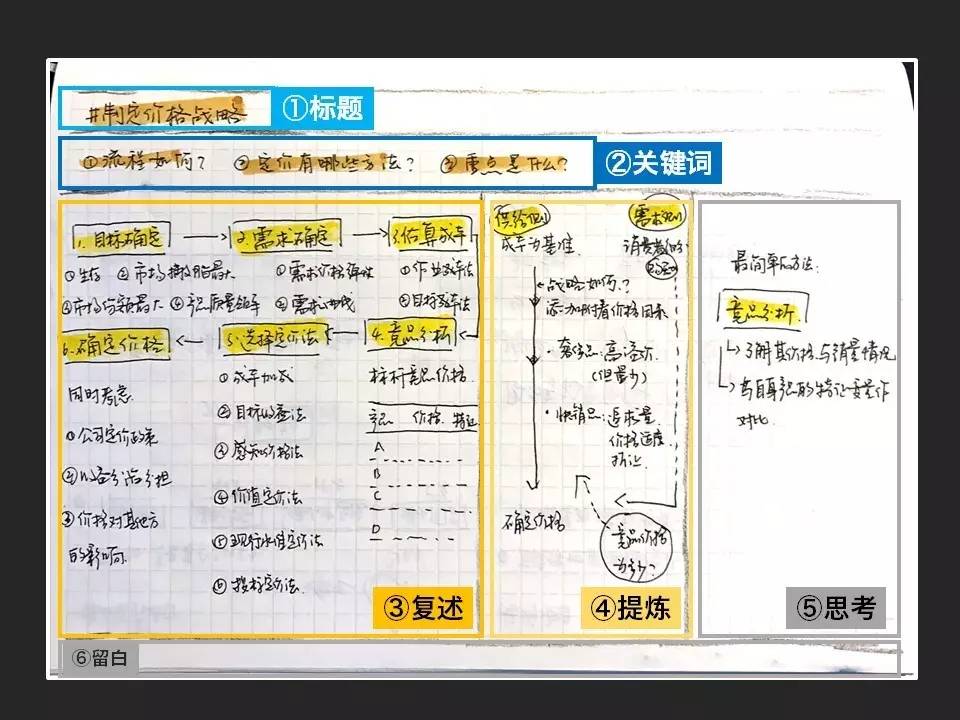 #制定价格战略
①标题
①流程如何? ②定价有哪些方法? ③重点是什么?
②关键词
1.目标确定
2.需求确定
3.估算成本
①生存 ②市场撇脂最大
③市场份额最大 ④产品质量领先
①需求价格弹性
②需求曲线
①作业成本法
②目标成本法
6.确定价格
5.选择定价法
4.竞品分析
同时考虑
①公司定价政策
②风险分担
③价格对其他方
的影响
①成本加成
②目标收益法
③感知价格法
④价值定价法
⑤现行水准定价法
⑥投标定价法
标杆竞品价格
产品 价格 特征
A
B
C
D
③复述
供给侧
成本为基准
需求侧
消费者价
战略如何?
添加附着价格因素
·奢侈品:高溢价
(但量少)
·快销品:追求量
价格适度
折让
确定价格
竞品价格
为多少?
④提炼
最简单方法:
竞品分析
了解其价格与销量情况
与自身产品的特征变量作
对比
⑤思考
⑥留白